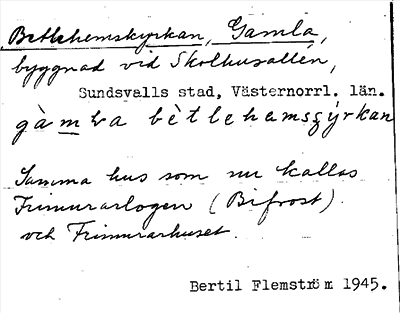 Betlehemskyrkan, Gamla,
byggnad vid Skolhusallén,
Sundsvalls stad, Västernorrl. län.
gàmla bètlehamsçýrkan
Samma hus som nu kallas
Frimurarlogen (Bifrost)
och Frimurarhuset.
Bertil Flemström 1945.